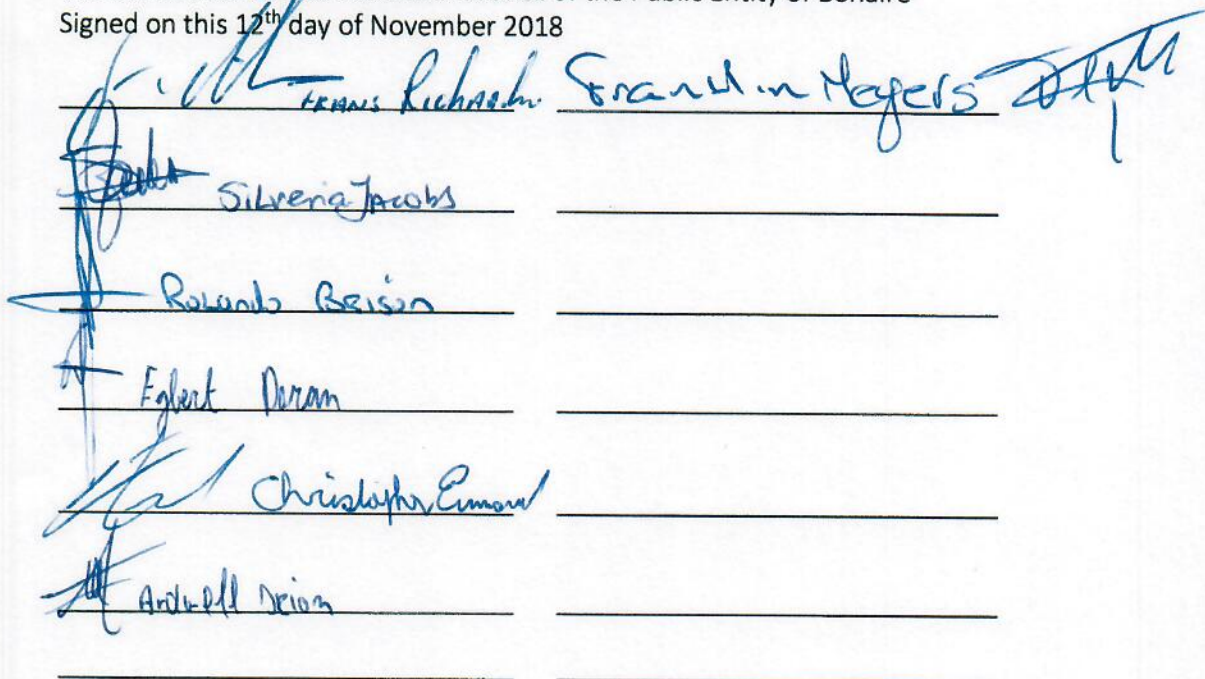 Signed on this 12th day of November 2018
FRANS Richardson Franklin Meyers
Silveria Jacobs
Rolando Brison
Egbert Doran
Christopher Emmanuel
Ardwell Irion